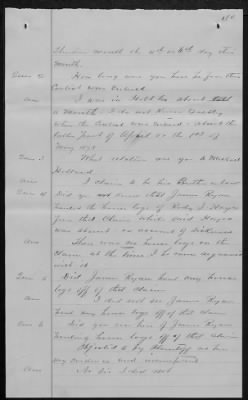 Month.
How long was you here before the
Contest was ordered
Ans I was in
a Month. I do not know exactly
when the Contest was ordered. About the
latter part of April or the 1st of
May 1878
Ques 3 What relation are you to Michael
Holland
Ans I claim to be his Brother in law
Ques 4 Did you not know that James Ryan
hauled the house logs of
from that Claim while said Hayes
was absent on account of sickness
Ans There was no house logs on the
Claim at the time I became acquainted
with it
Ques 5 Did James Ryan haul any house
logs off of that Claim
Ans I did not see James Ryan
haul any house logs off of that claim
Ques 6 Did you ever hear of James Ryan
hauling house logs off of that claim
Objected to by Plaintiff as hear
say evidence and immaterial
Ans No Sir I did not